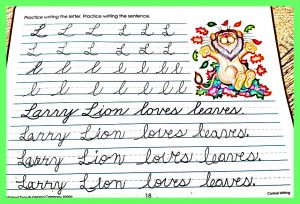 Practice writing the letter. Practice writing the sentence.
L L L L L L
L L L L L L
l l l l l l l
l l l l l l l
Larry Lion loves leaves.
Larry Lion loves leaves.
Larry Lion loves leaves.
Larry Lion loves leaves.
18
Cursive Writing